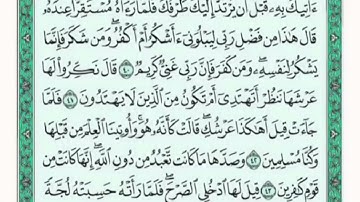 ءَاتِيكَ بِهِۦ قَبْلَ أَن يَرْتَدَّ إِلَيْكَ طَرْفُكَ فَلَمَّا رَءَاهُ مُسْتَقِرًّا عِندَهُۥ
قَالَ هَٰذَا مِن فَضْلِ رَبِّى لِيَبْلُوَنِىٓ ءَأَشْكُرُ أَمْ أَكْفُرُ ۖ وَمَن شَكَرَ فَإِنَّمَا
يَشْكُرُ لِنَفْسِهِۦ ۖ وَمَن كَفَرَ فَإِنَّ رَبِّى غَنِىٌّ كَرِيمٌ ٤٠ قَالَ نَكِّرُوا۟ لَهَا
عَرْشَهَا نَنظُرْ أَتَهْتَدِىٓ أَمْ تَكُونُ مِنَ ٱلَّذِينَ لَا يَهْتَدُونَ ٤١ فَلَمَّا
جَآءَتْ قِيلَ أَهَٰكَذَا عَرْشُكِ ۖ قَالَتْ كَأَنَّهُۥ هُوَ ۚ وَأُوتِينَا ٱلْعِلْمَ مِن قَبْلِهَا
وَكُنَّا مُسْلِمِينَ ٤٢ وَصَدَّهَا مَا كَانَت تَّعْبُدُ مِن دُونِ ٱللَّهِ ۖ إِنَّهَا كَانَتْ مِن
قَوْمٍ كَٰفِرِينَ ٤٣ قِيلَ لَهَا ٱدْخُلِى ٱلصَّرْحَ ۖ فَلَمَّا رَأَتْهُ حَسِبَتْهُ لُجَّةً